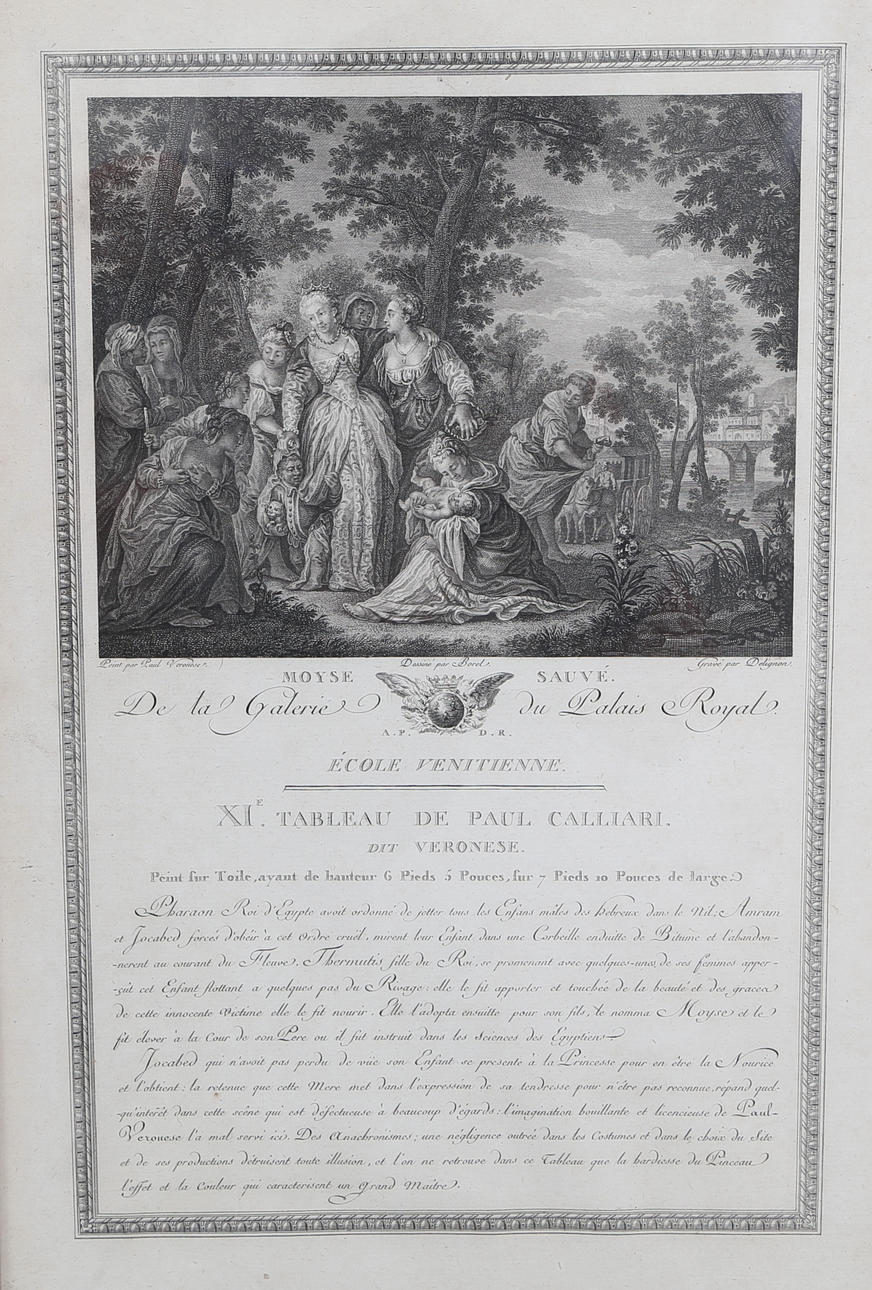 Peint par Paul Veronese.
Dessiné par Borel.
Gravé par Delignon.
MOYSE SAUVÉ.
De la Galerie du Palais Royal.
A. P. D. R.
ÉCOLE VENITIENNE.
XI.E TABLEAU DE PAUL CALLIARI.
DIT VERONESE.
Peint sur Toile, ayant de hauteur 6 Pieds 5 Pouces, sur 7 Pieds 10 Pouces de large.
Pharaon Roi d'Egypte avoit ordonné de jetter tous les Enfans mâles des hebreux dans le Nil; Amram
et Jocabed forcés d'obéir à cet Ordre cruël, mirent leur Enfant dans une Corbeille enduitte de Bitume et l'abandon-
-nerent au courant du Fleuve. Thermutis fille du Roi, se promenant avec quelques-unes de ses femmes apper-
-çut cet Enfant flottant a quelques pas du Rivage: elle le fit apporter et touchée de la beauté et des graces
de cette innocente Victime elle le fit nourir. Elle l'adopta ensuitte pour son fils, le nomma Moyse et le
fit élever à la Cour de son Pere ou il fut instruit dans les Sciences des Egyptiens.
Jocabed qui n'avoit pas perdu de vüe son Enfant se presente à la Princesse pour en être la Nourice
et l'obtient: la retenue que cette Mere met dans l'expression de sa tendresse pour n'être pas reconnue, répand quel-
-qu'interêt dans cette scêne qui est défectueuse à beaucoup d'égards: l'imagination bouillante et licencieuse de Paul-
Veronese l'a mal servi ici. Des Anachronismes; une négligence outrée dans les Costumes et dans le choix du Site
et de ses productions détruisent toute illusion, et l'on ne retrouve dans ce Tableau que la hardiesse du Pinceau
l'effet et la Couleur qui caracterisent un Grand Maitre.